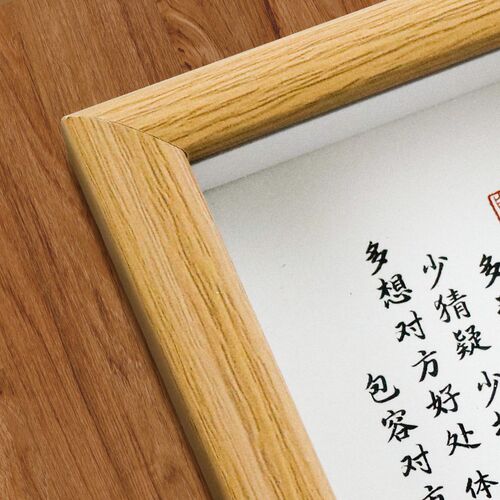 多
少猜疑少
多想对方好处体
包容对方